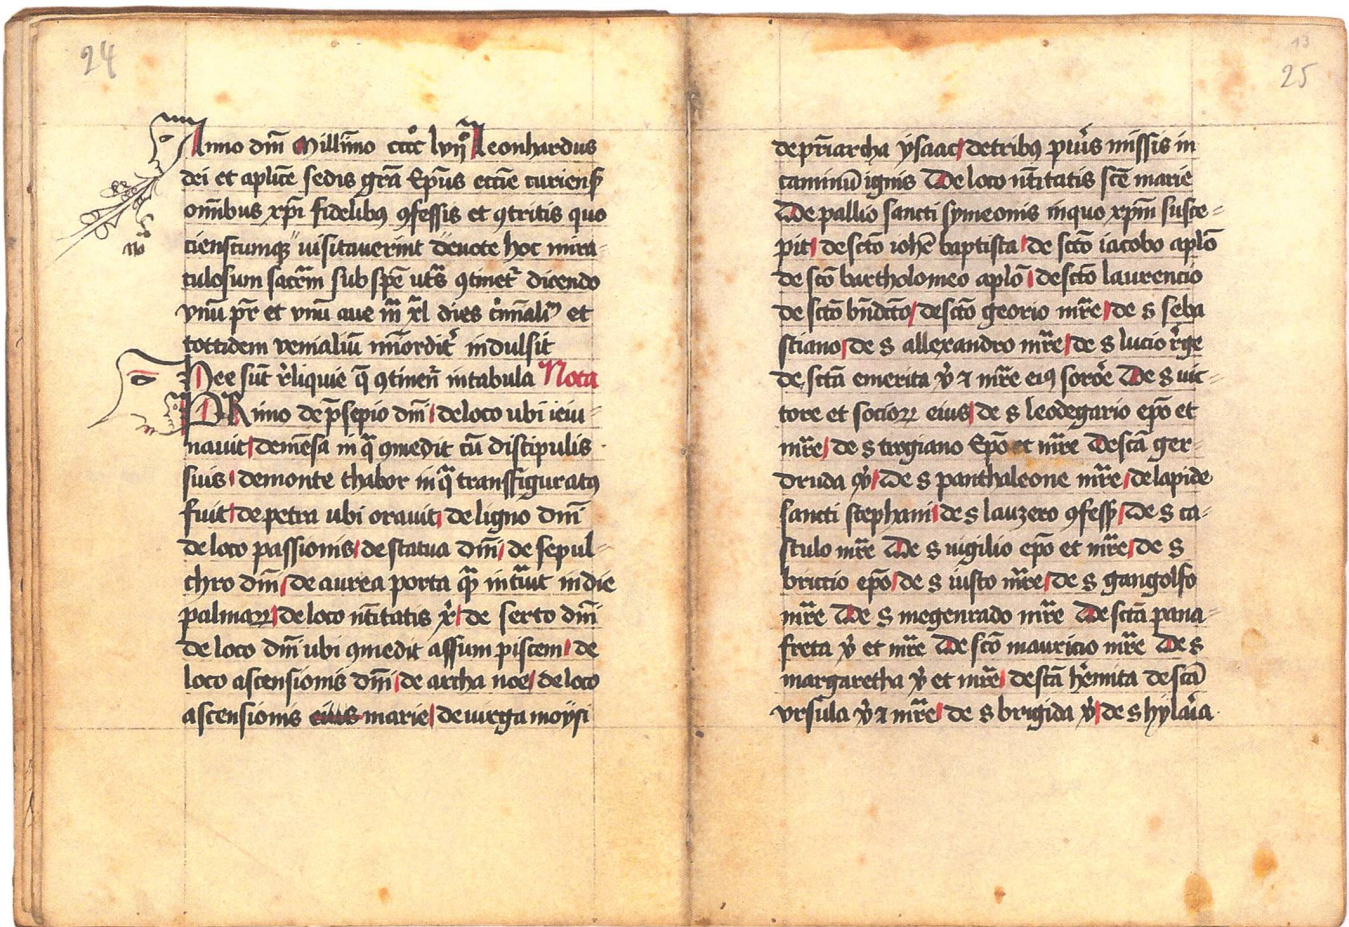 24
Anno dm̄ Millīmo cccc̊ lvij̊ Leonhardus
dei et aplīce sedis grā Epūs eccīe curiens̄
om̄ibus xp̄i fidelibꝫ ꝯfessis et ꝯtritis quo
cienscumqꝫ uisitauerint deuote hoc mira-
culosum sacrm̄ sub spē ... ꝯtinet᷑ dicendo
vnū pr̄ et vnū aue mͣ xl dies c̓mnaliū et
tottidem venialiū ... indulsit
Hee sūt r̓liquie q̄ ꝯtinen̄t intabula Nota
PRimo de p̄sepio dm̄ / deloco ubi ieiu-
nauit / demēsa in qͣ ꝯmedit cū discipulis
suis / demonte thabor in qͣ transfiguratꝫ
fuit / de petra ubi orauit / de ligno dm̄
de loco passionis / de statua dm̄ / de sepul-
chro dm̄ / de aurea porta qͣ intͣuit indie
palmaꝝ / de loco nt̄itatis x̓ / de serto dm̄
de loco dm̄ ubi ꝯmedit assum piscem / de
loco ascensionis dm̄ / de archa noe / de loco
ascensionis eius marie / de uirga moysi
13
25
de pr̄iarcha ysaac / detribꝫ pu̓is missis in
caminū ignis De loco nt̄itatis sc̄e marie
De pallio sancti symeonis inquo xpm̄ susce-
pit / de sct̄o ioh̄e baptista / de sct̄o iacobo aplō
de sct̄o bartholomeo aplō / de sct̄o laurencio
de sct̄o bn̄dc̄to / de sct̄o georio mr̄e / de s seba
stiano / de s allexandro mr̄e / de s lucio r̓ge
de sct̄a emerita v̓ ⁊ mr̄e eiꝫ sorōe De s uic-
tore et socioꝝ eius / de s leodegario ep̄o et
mr̄e / de s trogiano Ep̄o et mr̄e De sct̄a ger-
druda v̓ / De s panthaleone mr̄e / de lapide
sancti stephani / de s lauzero ꝯfess̄ / De s ca-
stulo mr̄e De s uigilio ep̄o et mr̄e / de s
briccio ep̄o / de s iusto mr̄e / de s gangolfo
mr̄e De s megenrado mr̄e De sct̄a pana-
freta v̓ et mr̄e De sct̄o mauricio mr̄e De s
margaretha v̓ et mr̄e / de sct̄a h̓emita de sct̄a
vrsula v̓ ⁊ mr̄e / de s brigida v̓ / de s hylaͥa